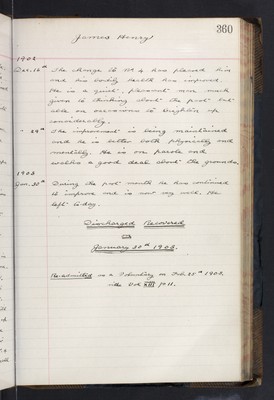 360
James Henry
1902
Dec. 16th The change to No 4 has pleased him
and his bodily health has improved.
He is a quiet, pleasant man much
given to thinking about the past but
able on occasions to brighten up
considerably.
" 29th The improvement is being maintained
and he is better both physically and
mentally. He is on parole and
walks a good deal about the grounds.
1903
Jan. 30th During the past month he has continued
to improve and is now very well. He
left today.
Discharged Recovered
on
January 30th 1903.
Re-admitted as a Voluntary on Feb. 25th 1903.
vide Vol XIII p. 11.